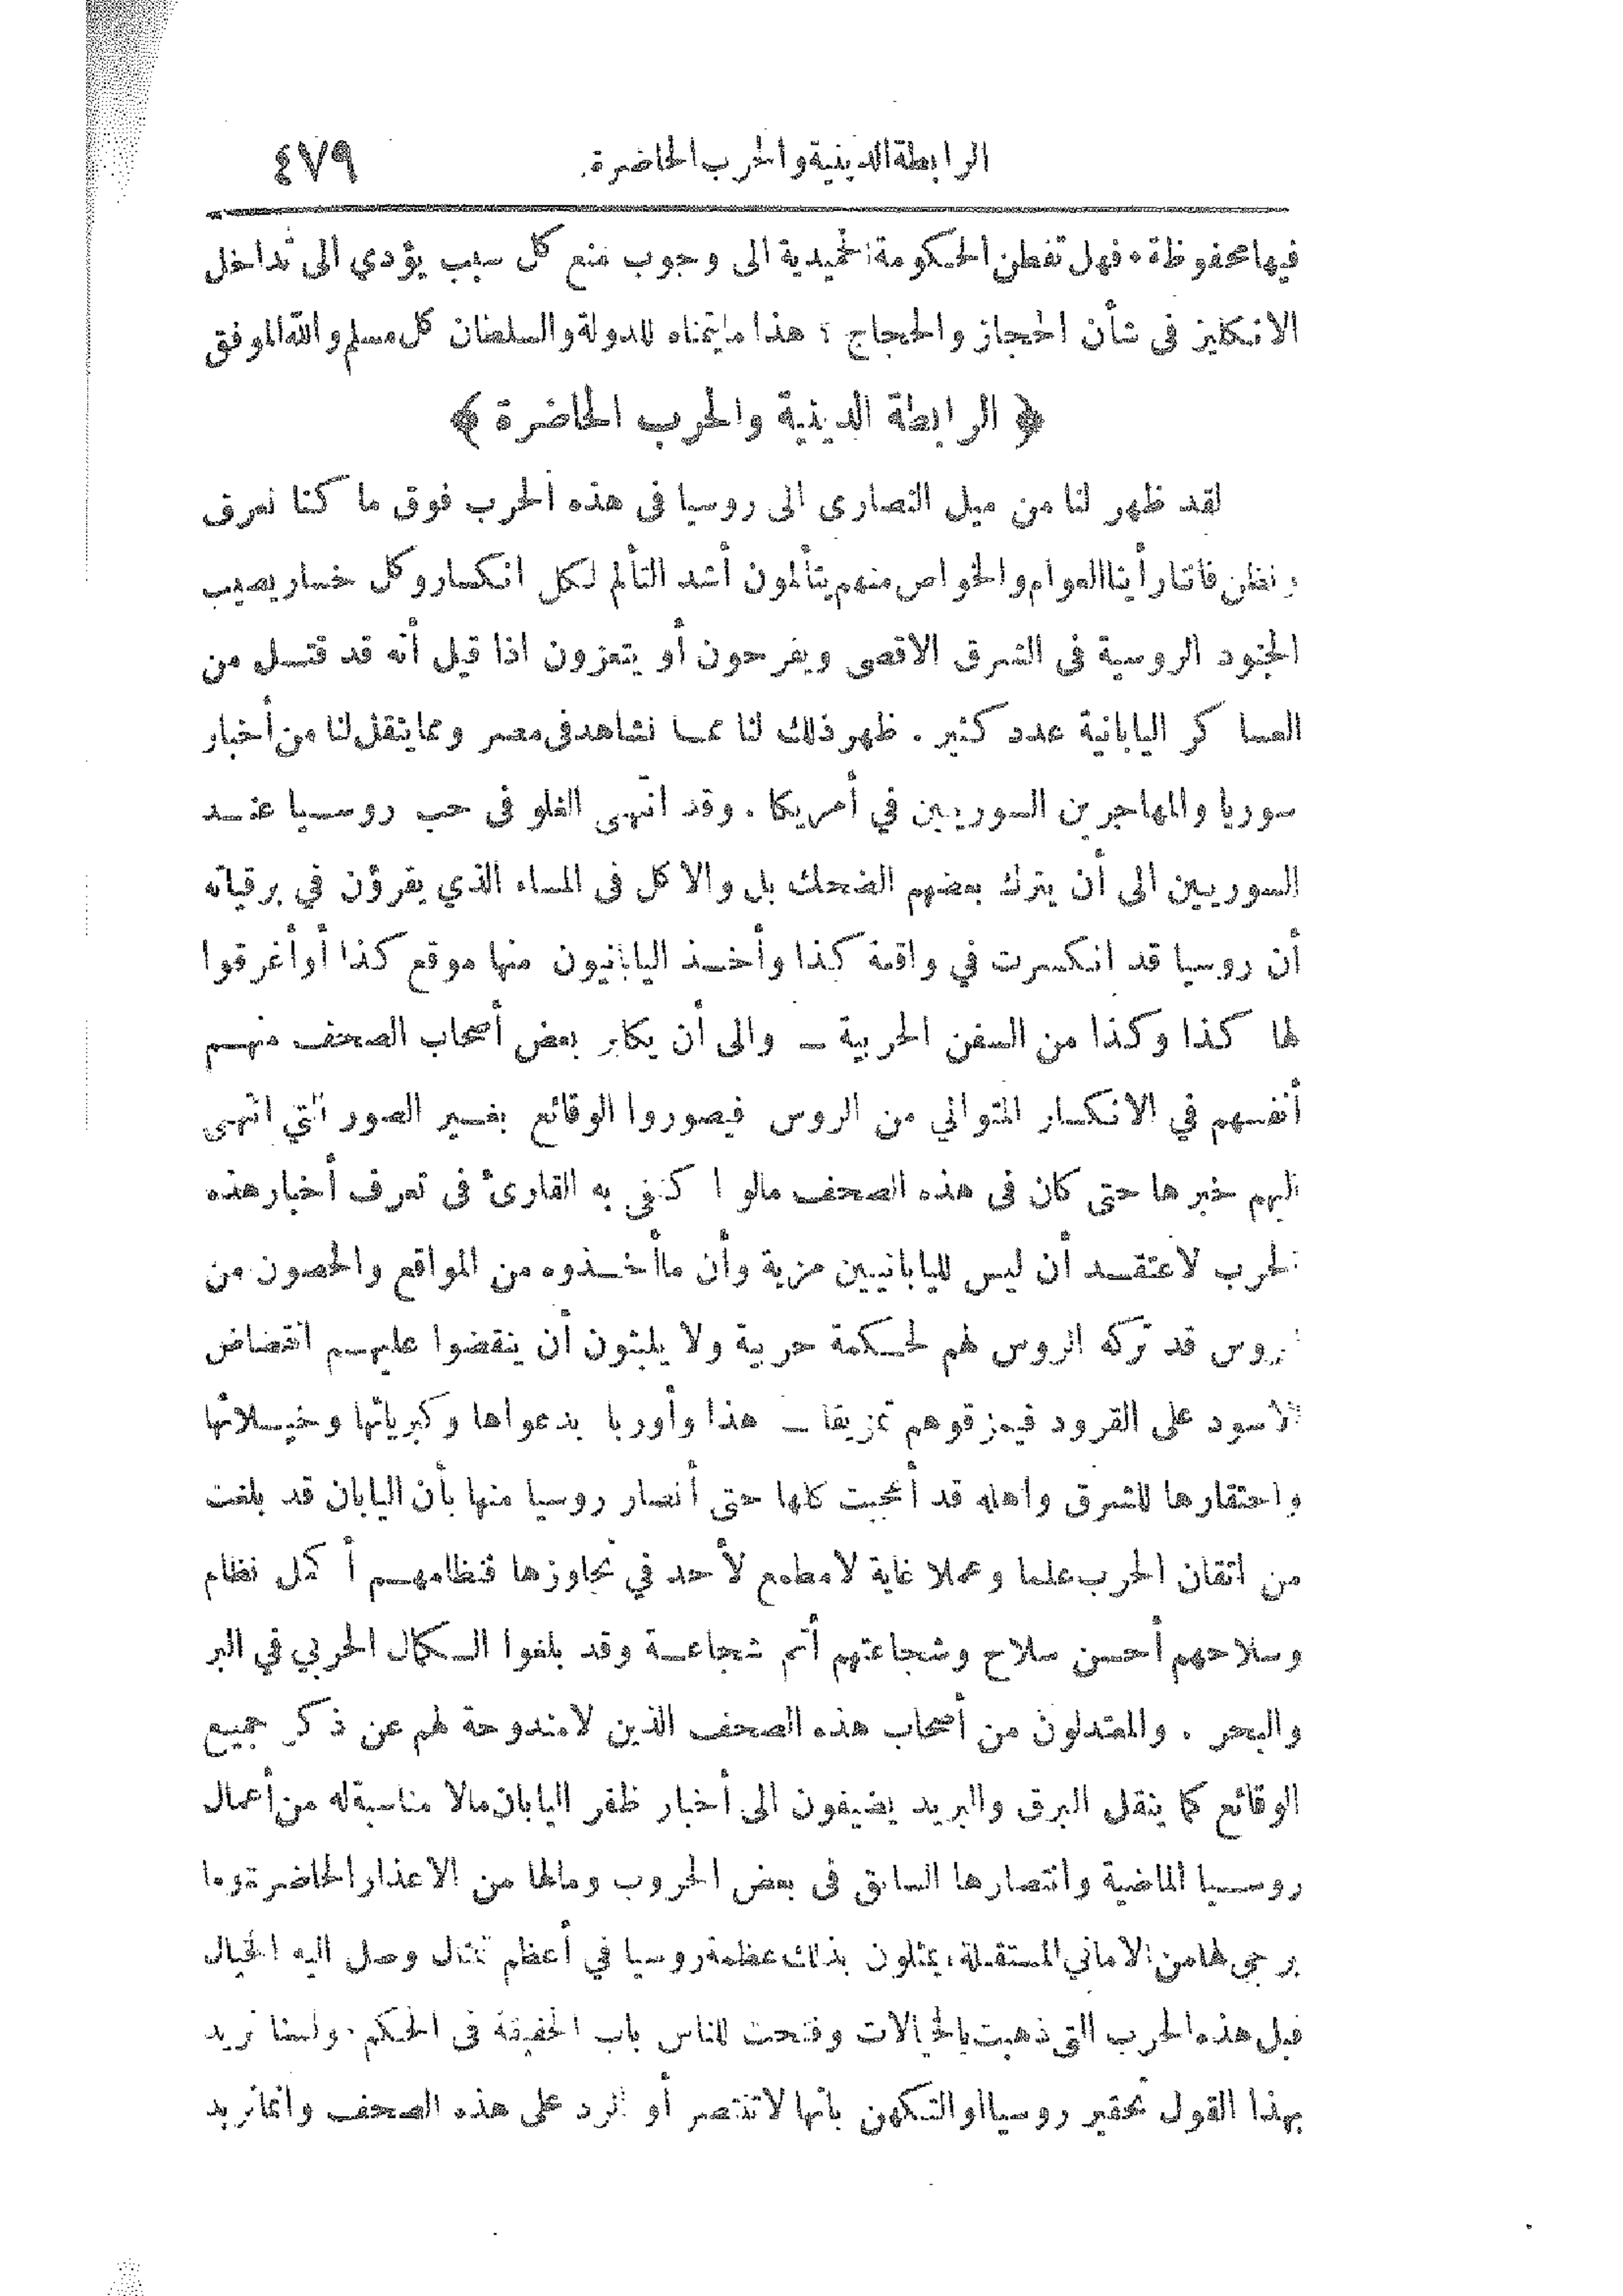 الرابطة الدينية والحرب الحاضرة ٤٧٩
فيها محفوظة . فهل تفطن الحكومة الحميدية الى وجوب منع كل سبب يؤدي الى تداخل
الانكليز في شأن الحجاز والحجاج ؟ هذا ما يتمناه للدولة والسلطان كل مسلم والله الموفق
﴿ الرابطة الدينية والحرب الحاضرة ﴾
لقد ظهر لنا من ميل النصارى الى روسيا فى هذه الحرب فوق ما كنا نعرف
ونظن فاننا رأينا العوام والخواص منهم يتألمون أشد التألم لكل انكسار وكل خسار يصيب
الجنود الروسية فى الشرق الاقصى ويفرحون أو يتعزون اذا قيل أنه قد قتل من
العساكر اليابانية عدد كثير . ظهر ذلك لنا مما نشاهد فى مصر ومما ينقل لنا من أخبار
سوريا والمهاجرين السوريين في أمريكا . وقد انتهى الغلو فى حب روسيا عند
السوريين الى أن يترك بعضهم الضحك بل والاكل فى المساء الذي يقرؤن في برقياته
أن روسيا قد انكسرت في واقعة كذا وأخذ اليابانيون منها موقع كذا أو أغرقوا
لها كذا وكذا من السفن الحربية ــ والى أن يكابر بعض أصحاب الصحف منهم
أنفسهم في الانكسار المتوالي من الروس فيصوروا الوقائع بغير الصور التي انتهى
اليهم خبرها حتى كان فى هذه الصحف مالو اكتفى به القارئ فى تعرف أخبار هذه
الحرب لاعتقد أن ليس لليابانيين مزية وأن ما أخذوه من المواقع والحصون من
الروس قد تركه الروس لهم لحكمة حربية ولا يلبثون أن ينقضوا عليهم انقضاض
الاسود على القرود فيمزقوهم تمزيقا ــ هذا وأوربا بدعواها وكبريائها وخيلائها
واحتقارها للشرق واهله قد أعجبت كلها حتى أنصار روسيا منها بأن اليابان قد بلغت
من اتقان الحرب علما وعملا غاية لا مطمع لأحد في تجاوزها فنظامهم أكمل نظام
وسلاحهم أحسن سلاح وشجاعتهم أتم شجاعة وقد بلغوا الكمال الحربي في البر
والبحر . والمعتدلون من أصحاب هذه الصحف الذين لامندوحة لهم عن ذكر جميع
الوقائع كما ينقل البرق والبريد يضيفون الى أخبار ظفر اليابان مالا مناسبة له من أعمال
روسيا الماضية وانتصارها السابق فى بعض الحروب ومالها من الاعذار الحاضرة وما
يرجى لها من الاماني المستقبلة ، يمثلون بذلك عظمة روسيا في أعظم تمثال وصل اليه الخيال
قبل هذه الحرب التي ذهبت بالخيالات وفتحت للناس باب الحقيقة فى الحكم . ولسنا نريد
بهذا القول تحقير روسيا او التكهن بانها لا تنتصر أو الرد على هذه الصحف وانما نريد